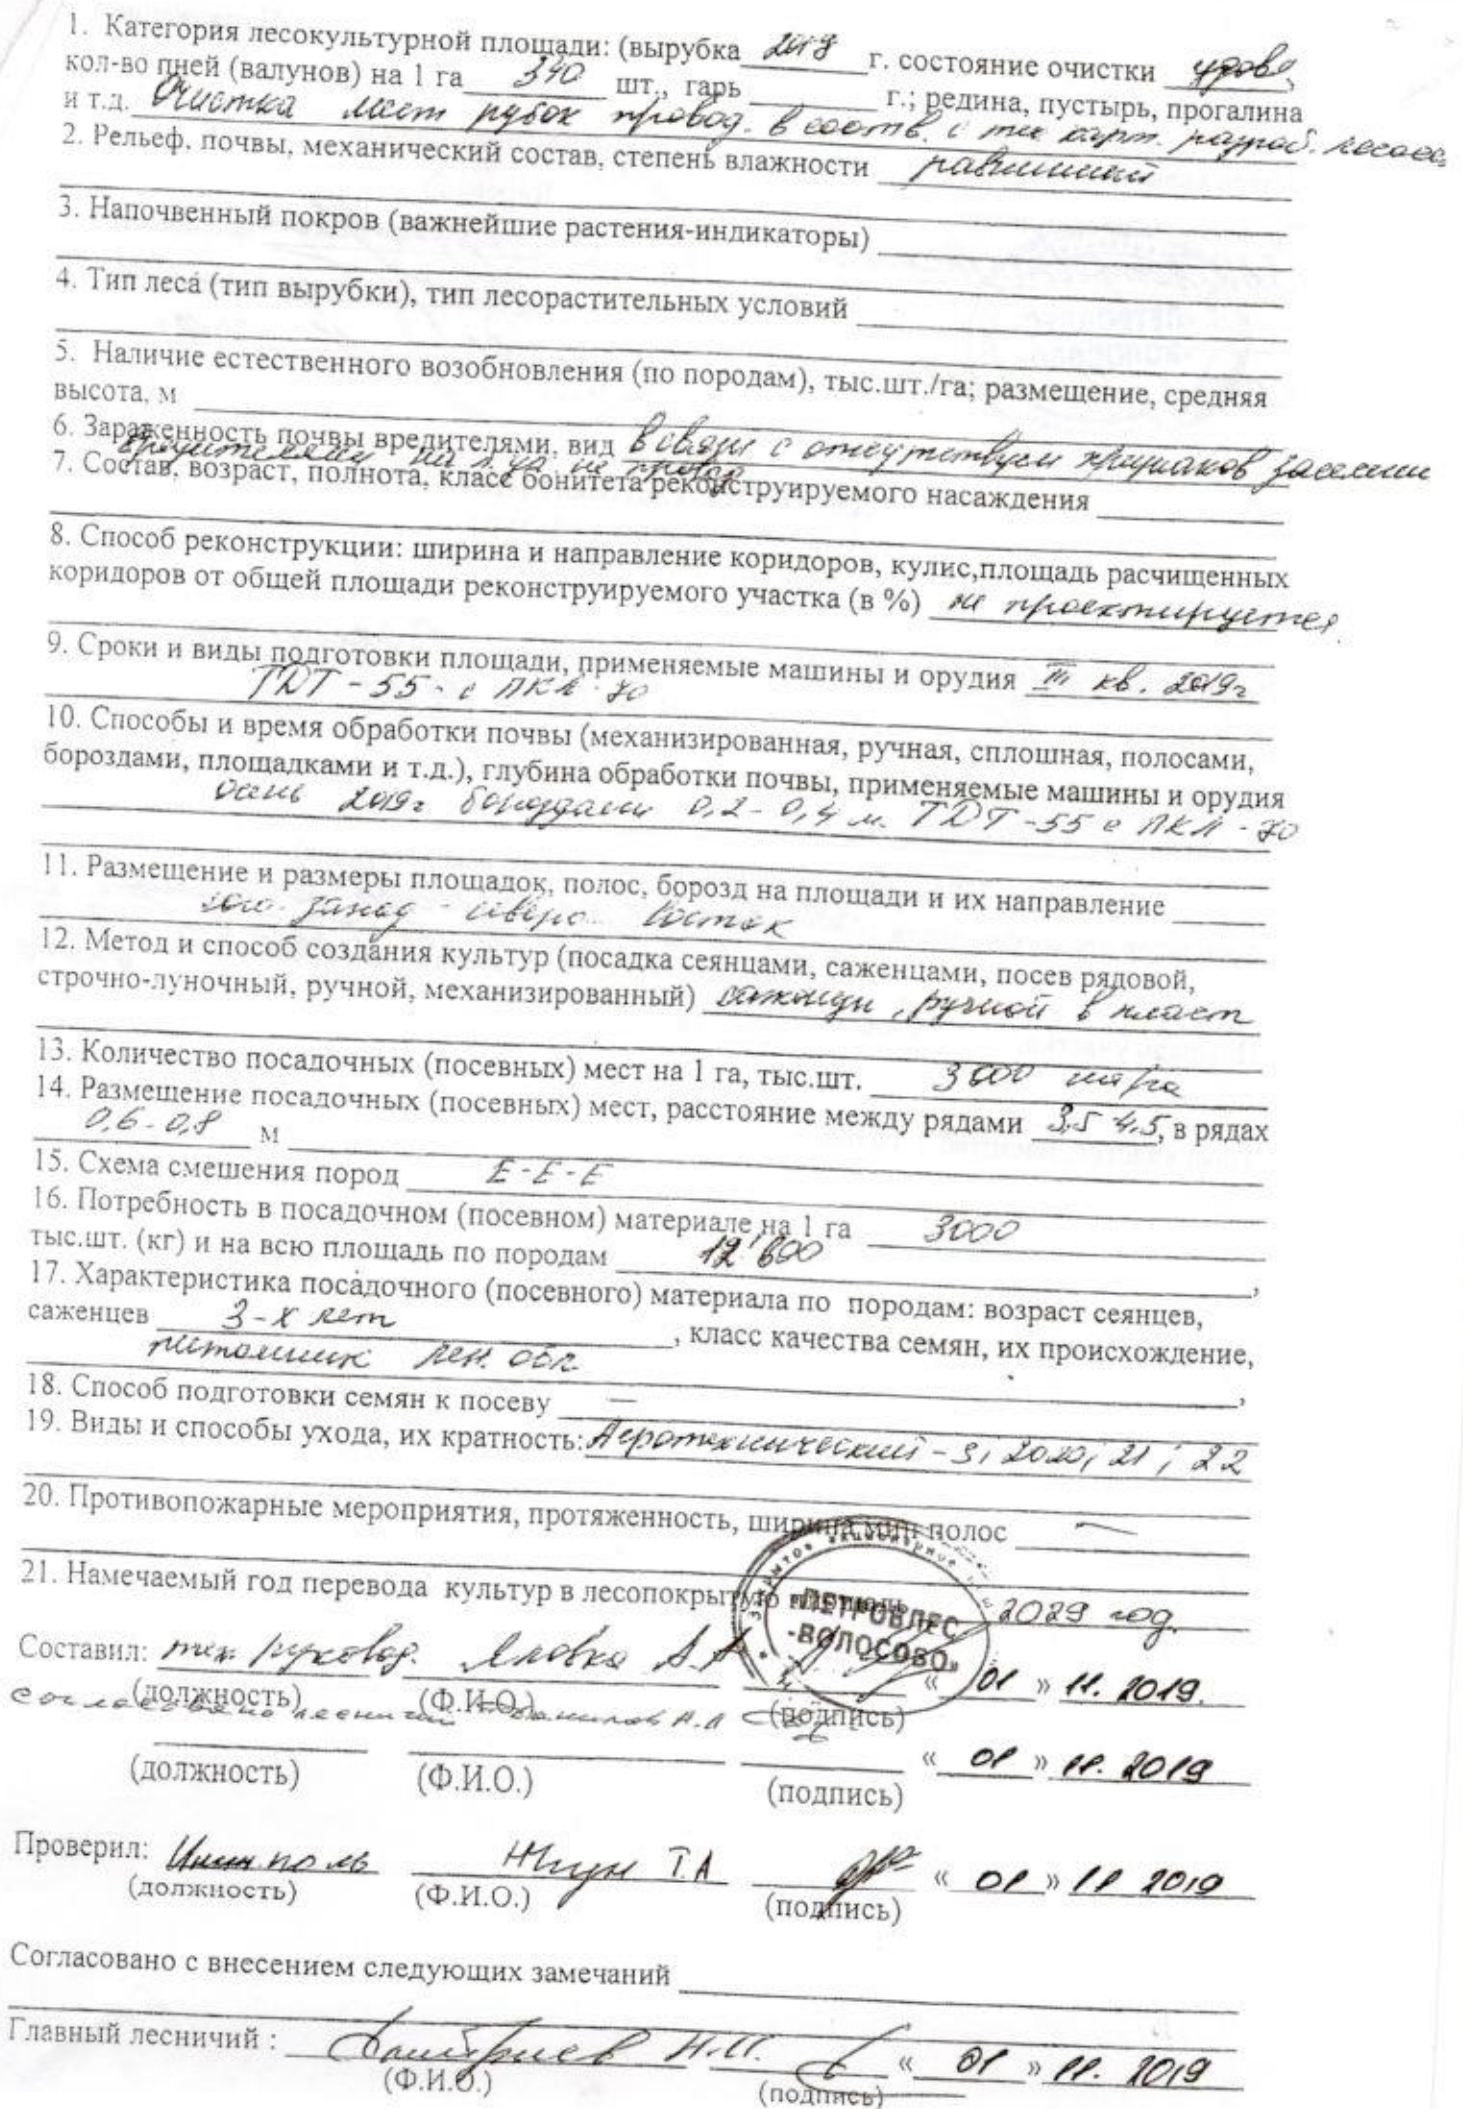 1. Категория лесокультурной площади: (вырубка 2018 г. состояние очистки удов.
кол-во пней (валунов) на 1 га 340 шт., гарь г.; редина, пустырь, прогалина
и т.д. Очистка мест рубок провод. в соотв. с тех карт. разраб. лесосек
2. Рельеф, почвы, механический состав, степень влажности равнинный
3. Напочвенный покров (важнейшие растения-индикаторы)
4. Тип леса (тип вырубки), тип лесорастительных условий
5. Наличие естественного возобновления (по породам), тыс.шт./га; размещение, средняя
высота, м
6. Зараженность почвы вредителями, вид В связи с отсутствием признаков заселения
вредителями на л/уч не провод
7. Состав, возраст, полнота, класс бонитета реконструируемого насаждения
8. Способ реконструкции: ширина и направление коридоров, кулис,площадь расчищенных
коридоров от общей площади реконструируемого участка (в %) не проектируется
9. Сроки и виды подготовки площади, применяемые машины и орудия III кв. 2019г
ТДТ-55- с ПКЛ-70
10. Способы и время обработки почвы (механизированная, ручная, сплошная, полосами,
бороздами, площадками и т.д.), глубина обработки почвы, применяемые машины и орудия
осень 2019г бороздами 0,2-0,4 м. ТДТ-55 с ПКЛ-70
11. Размещение и размеры площадок, полос, борозд на площади и их направление
юго-запад - северо восток
12. Метод и способ создания культур (посадка сеянцами, саженцами, посев рядовой,
строчно-луночный, ручной, механизированный) саженцы, ручной в пласт
13. Количество посадочных (посевных) мест на 1 га, тыс.шт. 3000 шт/га
14. Размещение посадочных (посевных) мест, расстояние между рядами 3,5 4,5, в рядах
0,6-0,8 м
15. Схема смешения пород Е-Е-Е
16. Потребность в посадочном (посевном) материале на 1 га 3000
тыс.шт. (кг) и на всю площадь по породам 12 600,
17. Характеристика посадочного (посевного) материала по породам: возраст сеянцев,
саженцев 3-х лет, класс качества семян, их происхождение,
питомник Лен. обл.,
18. Способ подготовки семян к посеву —,
19. Виды и способы ухода, их кратность: Агротехнический - 3, 2020, 21, 22
20. Противопожарные мероприятия, протяженность, ширина мин. полос —
21. Намечаемый год перевода культур в лесопокрытую площадь 2029 год.
"ПЕТРОВЛЕС
-ВОЛОСОВО"
Составил: тех. руковод. Яловка А.А « 01 » 11. 2019.
(должность) (Ф.И.О.) (подпись)
согласовано лесничий Н.Л
« 01 » 11. 2019
(должность) (Ф.И.О.) (подпись)
Проверил: Т.А « 01 » 11 2019
(должность) (Ф.И.О.) (подпись)
Согласовано с внесением следующих замечаний
Главный лесничий : Дмитриев Н.И. « 01 » 11. 2019
(Ф.И.О.) (подпись)